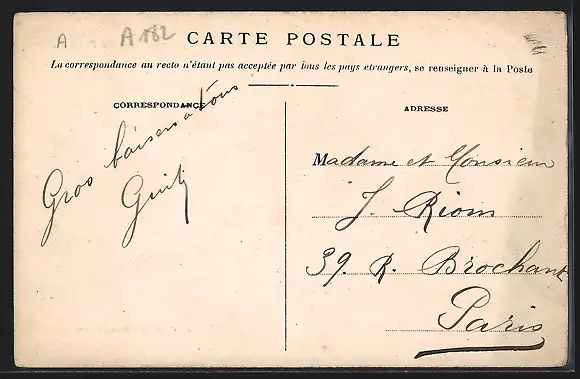 A A 182
CARTE POSTALE
La correspondance au recto n'étant pas acceptée par tous les pays étrangers, se renseigner à la Poste
CORRESPONDANCE
Gros baisers a tous
ADRESSE
Madame et Monsieur
J. Rions
39. R. Brochant
Paris